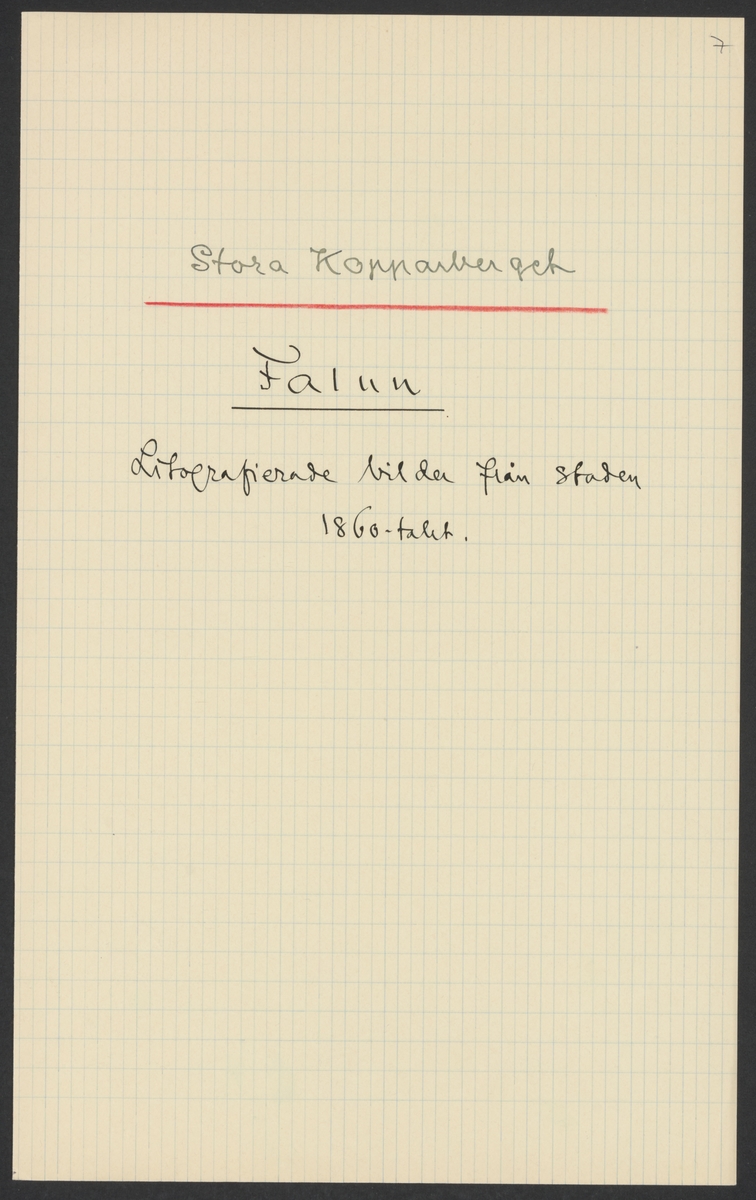 7
Stora Kopparberget
Falun
Litografierade bilder från staden
1860-talet.